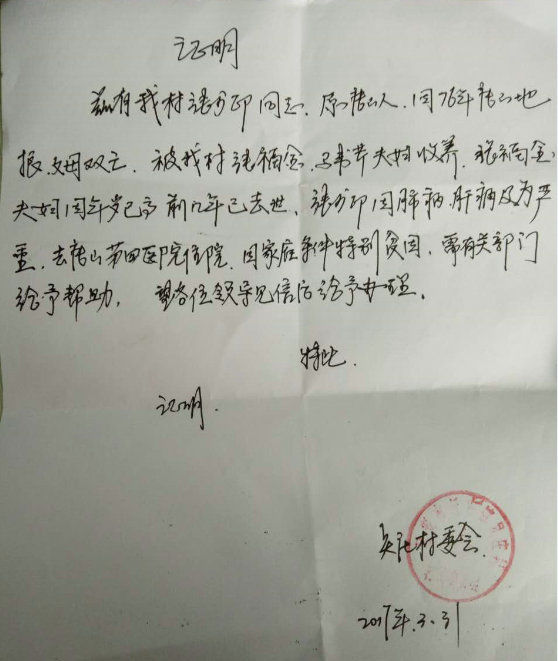 证明
兹有我村张少印同志，原唐山人，因76年唐山地
报，父母双亡，被我村张福金、马书芹夫妇收养，张福金
夫妇因年岁已高前几年已去世，张少印因肺病肝病及为严
重，去唐山第四医院住院，因家庭条件特别贫困，需有关部门
给予帮助，望各位领导见信后给予办理。
特此
证明．
村委会
2017年.3.31